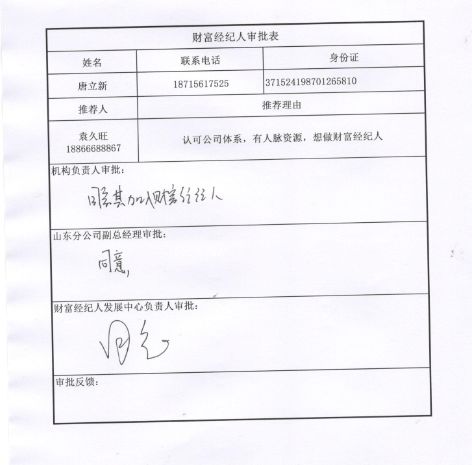 财富经纪人审批表
姓名 联系电话 身份证
唐立新 18715617525 371524198701265810
推荐人 推荐理由
袁久旺
18866688867 认可公司体系，有人脉资源，想做财富经纪人
机构负责人审批：
同意其加入财富经纪人
山东分公司副总经理审批：
同意，
财富经纪人发展中心负责人审批：
同意
审批反馈：